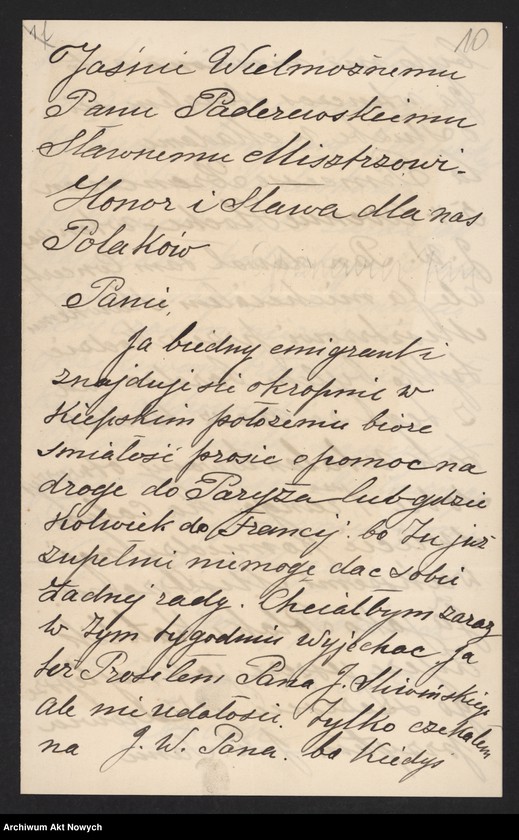 10
Jaśnie Wielmożnemu
Panu Paderewskiemu
Sławnemu Misztrzowi.
Honor i Sława dla nas
Polaków
Panie,
Ja biedny emigrant i
znajduje sie okropnie w
Kiepskim położeniu biore
smiałość prosic o pomoc na
droge do Paryża lub gdzie
Kolwiek do Francij. bo tu już
zupełni nimoge dac sobie
żadnej rady. Chciałbym zaraz
w tym tygodniu wyjechac Ja
tez Prosilem Pana J. Sliwińskiego
ale ni udałosie. Tylko czekałem
na J. W. Pana. bo Kiedys
Archiwum Akt Nowych